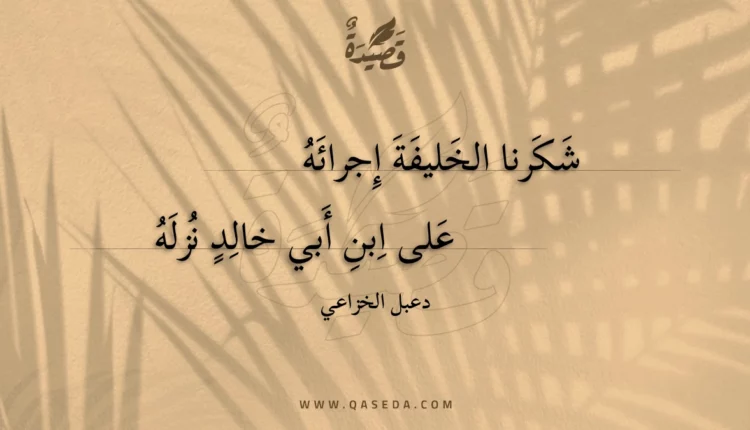 قَصِيدَةٌ
شَكَرنا الخَليفَةَ إِجرائَهُ
عَلى اِبنِ أَبي خالِدٍ نُزلَهُ
دعبل الخزاعي
WWW.QASEDA.COM